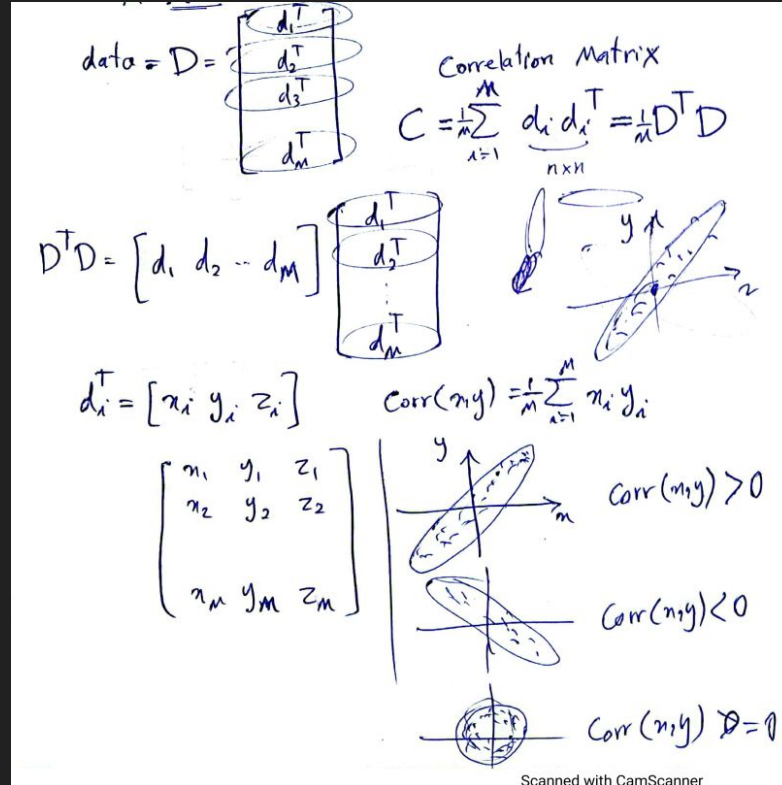 data = D = [d₁ᵀ
d₂ᵀ
d₃ᵀ
d_Mᵀ]
Correlation Matrix
C = 1/M Σ_{i=1}^{M} dᵢ dᵢᵀ = 1/M DᵀD
n×n
DᵀD = [d₁ d₂ -- d_M] [d₁ᵀ
d₂ᵀ
⋮
d_Mᵀ]
y
x
dᵢᵀ = [xᵢ yᵢ zᵢ]
Corr(x,y) = 1/M Σ_{i=1}^{M} xᵢ yᵢ
[x₁ y₁ z₁
x₂ y₂ z₂
x_M y_M z_M]
y
x
Corr(x,y) > 0
Corr(x,y) < 0
Corr(x,y) = 0
Scanned with CamScanner